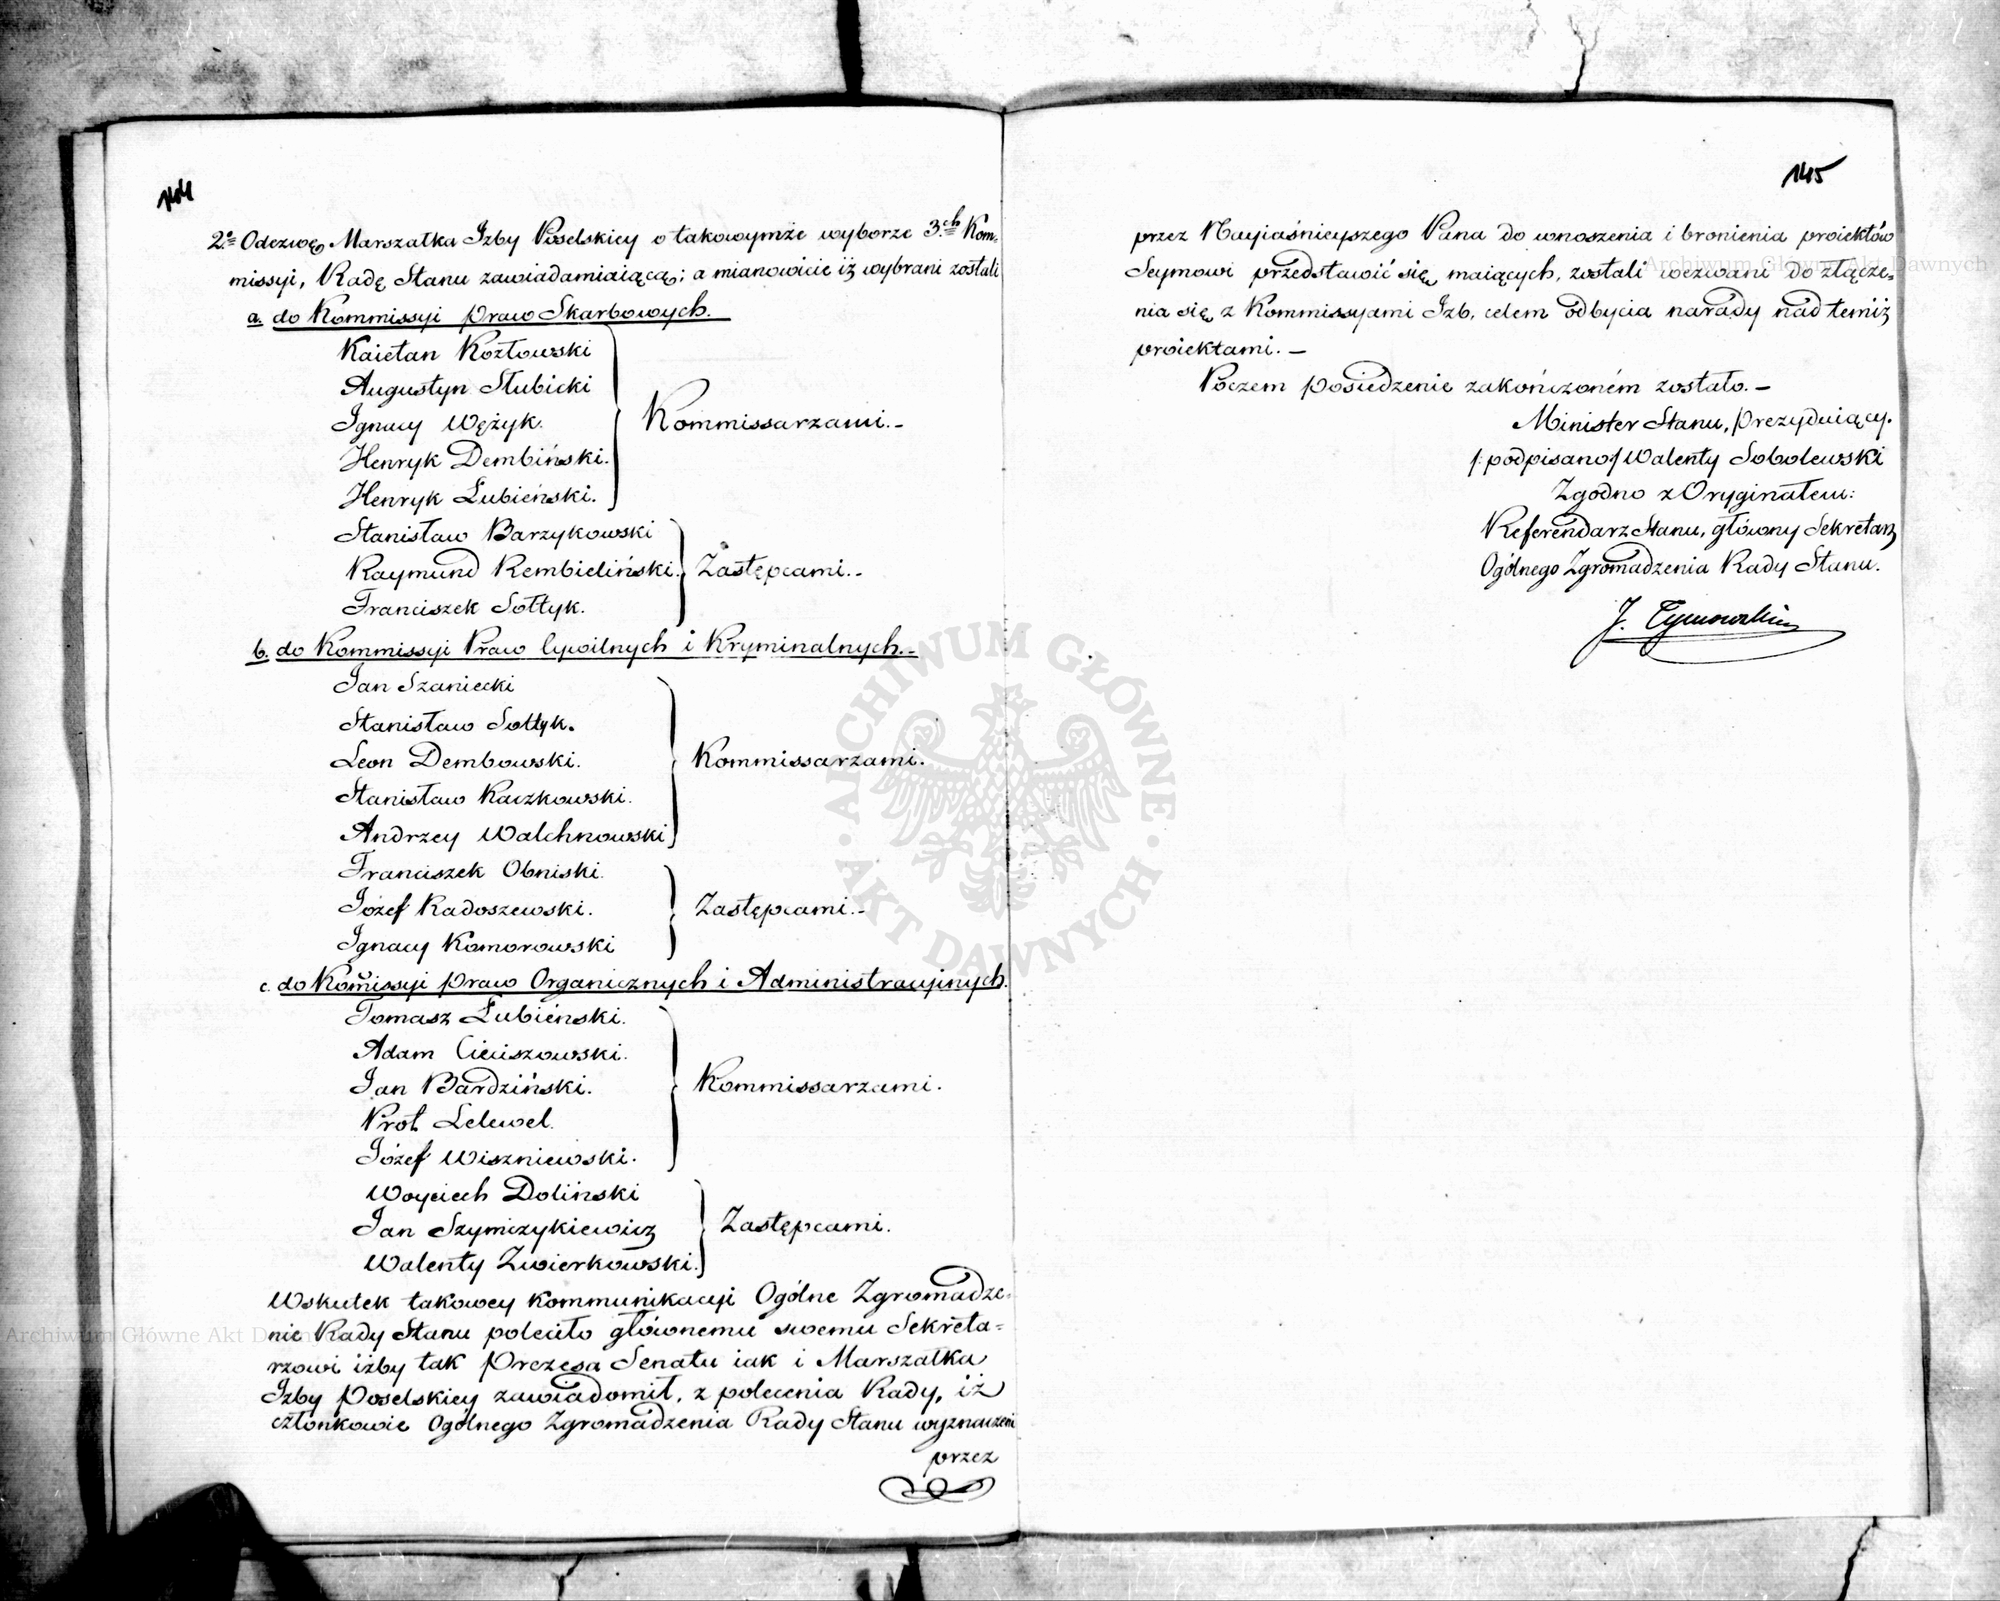 144
2º Odezwę Marszałka Izby Poselskiey o takowymże wyborze 3.ch Kom-
missyi, Radę Stanu zawiadamiaiącą; a mianowicie iż wybrani zostali
a. do Kommissyi praw Skarbowych.
Kaietan Kozłowski
Augustyn Słubicki
Ignacy Wężyk.
Henryk Dembiński.
Henryk Łubieński.
Kommissarzami.-
Stanisław Barzykowski
Raymund Rembieliński.
Franciszek Sołtyk.
Zastępcami.-
b. do Kommissyi Praw Cywilnych i Kryminalnych.-
Jan Szaniecki
Stanisław Sołtyk.
Leon Dembowski.
Stanisław Kaczkowski.
Andrzey Walchnowski
Kommissarzami.
Franciszek Obniski.
Józef Radoszewski.
Ignacy Komorowski
Zastępcami.-
c. do Kom̃issyi praw Organicznych i Administracyjnych.
Tomasz Łubieński.
Adam Cieciszowski.
Jan Bardziński.
Prot Lelewel.
Józef Wiszniewski.
Kommissarzami.
Woyciech Doliński
Jan Szymczykiewicz
Walenty Zwierkowski.
Zastępcami.
Wskutek takowey kommunikacyi Ogólne Zgromadze-
nie Rady Stanu poleciło głównemu swemu Sekreta-
rzowi iżby tak Prezesa Senatu iak i Marszałka
Izby Poselskiey zawiadomił, z polecenia Rady, iż
członkowie Ogólnego Zgromadzenia Rady Stanu wyznaczeni
przez
145
przez Nayiaśnieyszego Pana do wnoszenia i bronienia proiektów
Seymowi przedstawić się maiących, zostali wezwani do złącze-
nia się z Kommissyami Izb, celem odbycia narady nad temiż
proiektami.-
Poczem posiedzenie zakończoném zostało.-
Minister Stanu, Prezyduiący.
/: podpisano/ Walenty Sobolewski
Zgodno z Oryginałem:
Referendarz Stanu, główny Sekretarz
Ogólnego Zgromadzenia Rady Stanu.
J. Tymowski
ARCHIWUM GŁÓWNE AKT DAWNYCH
Archiwum Główne Akt Dawnych
Archiwum Główne Akt Dawnych